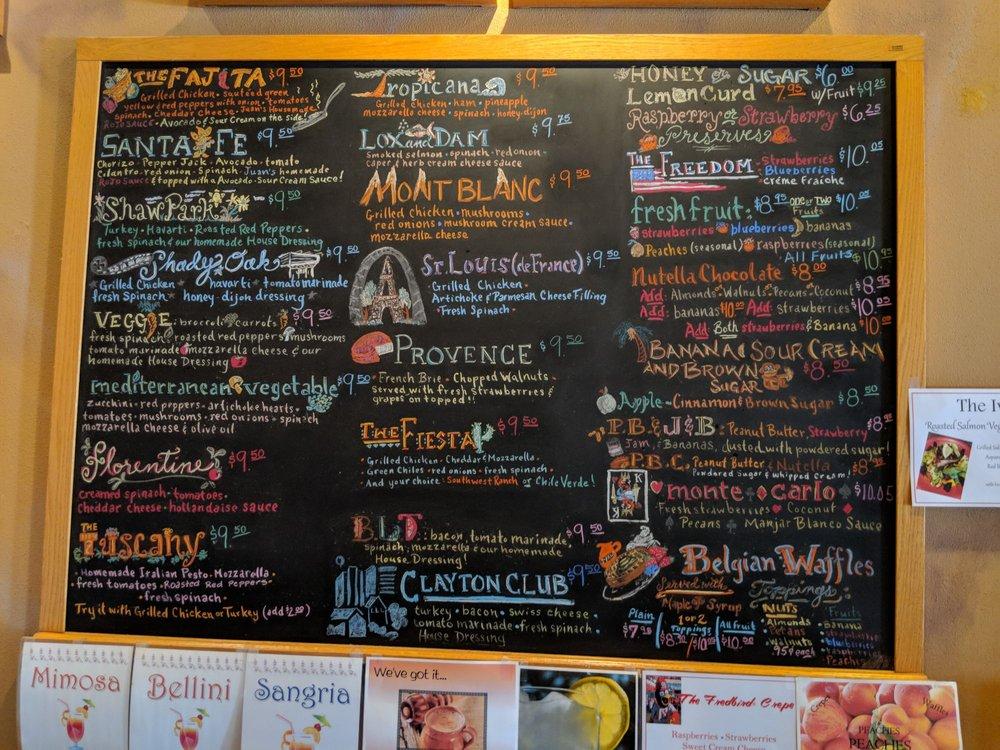 THE FAJITA $9.50
Grilled Chicken · sauteed green
yellow & red peppers with onion · tomatoes
spinach · cheddar cheese · Juan's Homemade
Rojo Sauce · Avocado & Sour Cream on the side!
SANTA FE $9.50
Chorizo · Pepper Jack · Avocado · tomato
Cilantro · red onion · Spinach · Juan's homemade
Rojo Sauce & topped with a Avocado · Sour Cream Sauce!
Shaw Park $9.50
Turkey · Havarti · Roasted Red Peppers ·
fresh spinach & our homemade House Dressing
Shady Oak $9.50
Grilled Chicken havarti · tomato marinade
fresh Spinach honey · dijon dressing
VEGGIE: broccoli carrots $9.50
fresh spinach roasted red peppers mushrooms
tomato marinade mozzarella cheese & our
homemade House Dressing
mediterranean vegetable $9.50
zucchini · red peppers · artichoke hearts ·
tomatoes · mushrooms · red onions · spinach
mozzarella cheese & olive oil
Florentine $9.50
creamed spinach · tomatoes ·
cheddar cheese · hollandaise sauce
THE Tuscany $9.50
· Homemade Italian Pesto · Mozzarella ·
· fresh tomatoes · Roasted Red Peppers ·
· fresh spinach ·
Try it with Grilled Chicken or Turkey (add $2.00)
Tropicana $9.50
Grilled Chicken · ham · pineapple
mozzarella cheese · spinach · honey · dijon
LOX and DAM $9.75
Smoked salmon · spinach · red onion ·
caper & herb cream cheese sauce
MONT BLANC $9.50
Grilled chicken · mushrooms ·
red onions · mushroom cream sauce ·
mozzarella cheese
St. Louis (de France) $9.50
· Grilled Chicken ·
Artichoke & Parmesan Cheese Filling
· Fresh Spinach ·
PROVENCE $9.50
· French Brie · Chopped Walnuts ·
served with fresh strawberries &
grapes on topped!!
THE FIESTA $9.50
· Grilled Chicken · Cheddar & Mozzarella ·
Green Chiles · red onions · fresh spinach ·
And your choice: Southwest Ranch or Chile Verde!
B.L.T.: bacon, tomato marinade $9.50
Spinach, mozzarella & our homemade
House Dressing!
CLAYTON CLUB $9.50
turkey · bacon · swiss cheese
tomato marinade · fresh spinach ·
House Dressing
HONEY or SUGAR $6.00
Lemon Curd $7.95 w/Fruit $9.25
Raspberry or Strawberry $6.25
Preserves
THE FREEDOM · Strawberries $10.05
· Blueberries
· Créme Fraiche
fresh fruit: $8.95 one or two Fruits $10.05
strawberries blueberries bananas
Peaches (seasonal) raspberries (seasonal)
All Fruits $10.95
Nutella Chocolate $8.00
Add: Almonds · Walnuts · Pecans · Coconut $8.95
Add: bananas $10.00 Add: strawberries $10.05
Add: Both strawberries & Banana $10.00
BANANA & SOUR CREAM
AND BROWN SUGAR $8.50
Apple - Cinnamon & Brown Sugar $8.50
P.B. & J & B: Peanut Butter, Strawberry $8.95
Jam, Bananas, dusted with powdered sugar!
P.B.C. Peanut Butter & Nutella
Powdered Sugar & whipped Cream!
monte carlo $10.05
Fresh strawberries Coconut
Pecans Manjar Blanco Sauce
Belgian Waffles
Served with Toppings
Maple Syrup
Plain $7.95
1 or 2 Toppings
All fruit
NUTS
Almonds
Pecans
walnuts
.95¢ each
Fruits
Banana
strawberries
blueberries
raspberries
Peaches
Roasted Salmon
Mimosa
Bellini
Sangria
We've got it...
The Fredbird Crepe
Raspberries · Strawberries
Crepes
Waffles
PEACHES
PEACHES